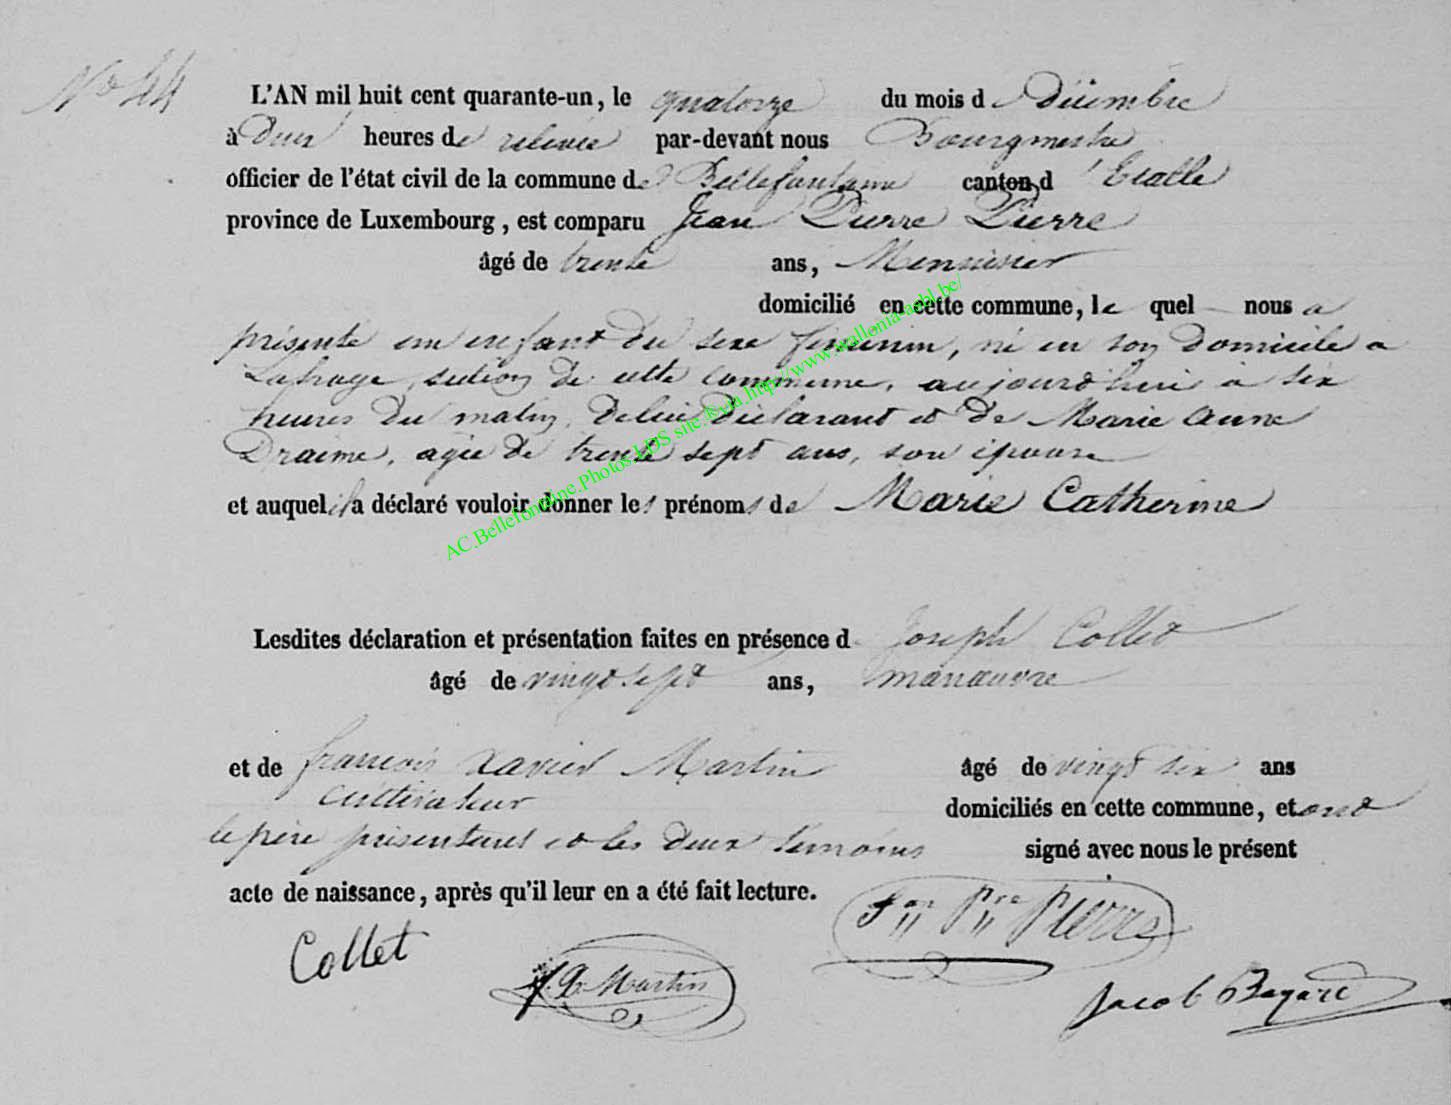 N° 44
L'AN mil huit cent quarante-un, le quatorze du mois de Décembre
à Deux heures de relevée par-devant nous Bourgmestre
officier de l'état civil de la commune de Bellefontaine canton d'Etalle
province de Luxembourg, est comparu Jean Pierre Pierre
âgé de trente ans, Menuisier
domicilié en cette commune, le quel nous a
présenté un enfant du sexe féminin, né en son Domicile a
Lahage, section de cette commune, aujourd'hui à six
heures du matin, de lui déclarant et de Marie Anne
Draime, agée de trente sept ans, son épouse
et auquel il a déclaré vouloir donner les prénoms de Marie Catherine
Lesdites déclaration et présentation faites en présence d Joseph Collet
âgé de vingt sept ans, manœuvre
et de françois Xavier Martin âgé de vingt six ans
cultivateur domiciliés en cette commune, et ont
le père présentant et les deux témoins signé avec nous le présent
acte de naissance, après qu'il leur en a été fait lecture.
Jean Prre Pierre
Collet
f. X. Martin
Jacob Bagard
AC.Bellefontaine.Photos.LDS site & via http://www.wallonia-asbl.be/